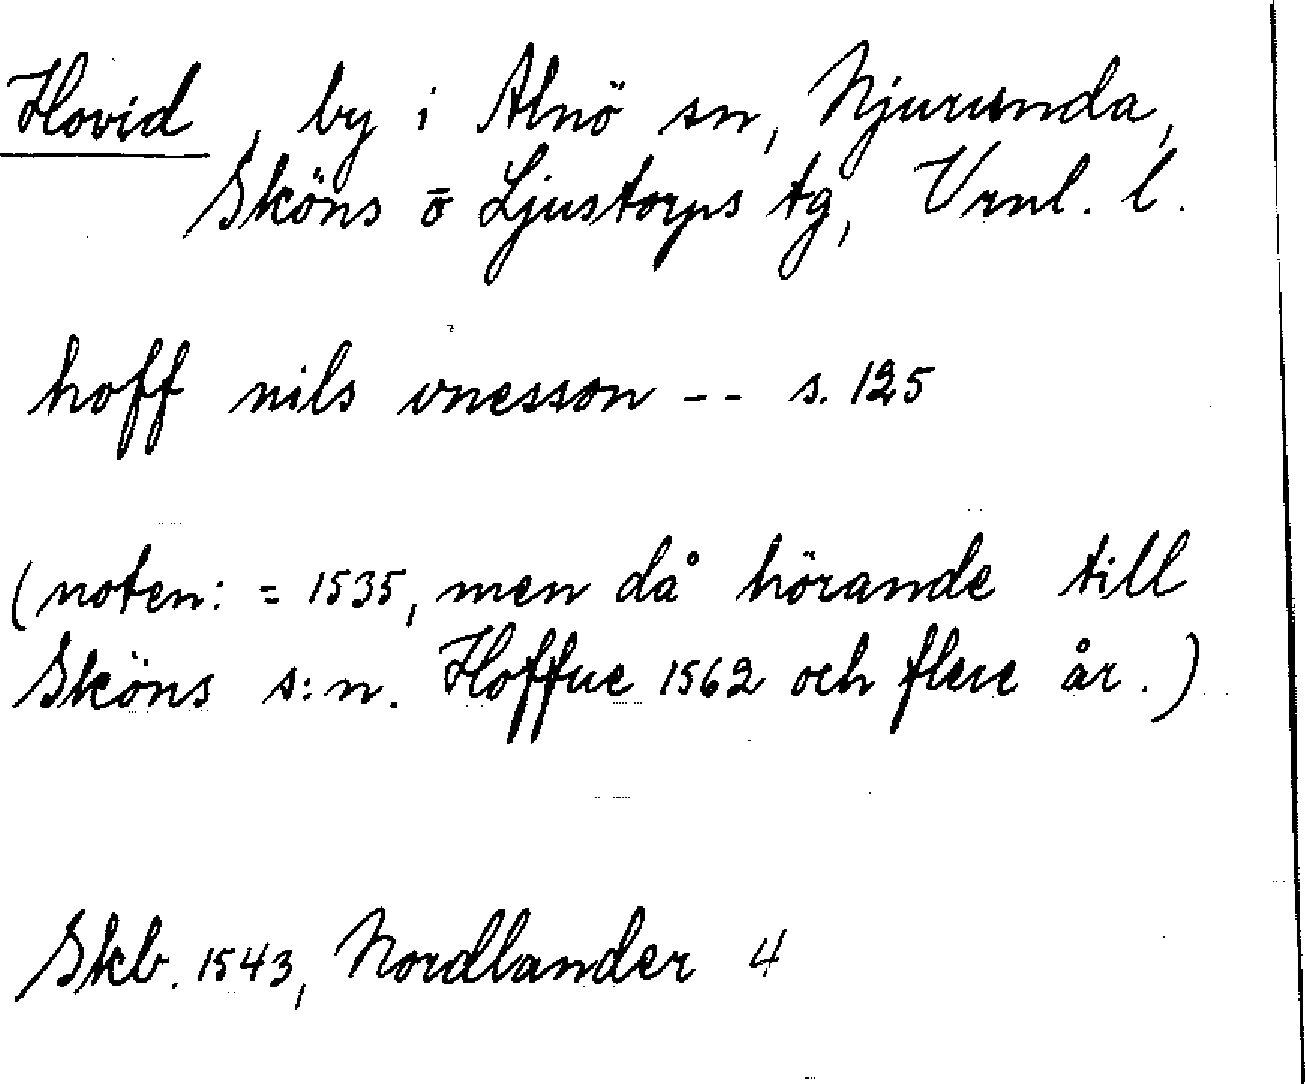 Hovid, by i Alnö sn, Njurunda,
Sköns o Ljustorps tg, Vrnl. l.
hoff nils vnesson -- s. 125
(noten: = 1535, men då hörande till
Sköns s:n. Hoffue 1562 och flere år.)
Skb. 1543, Nordlander 4